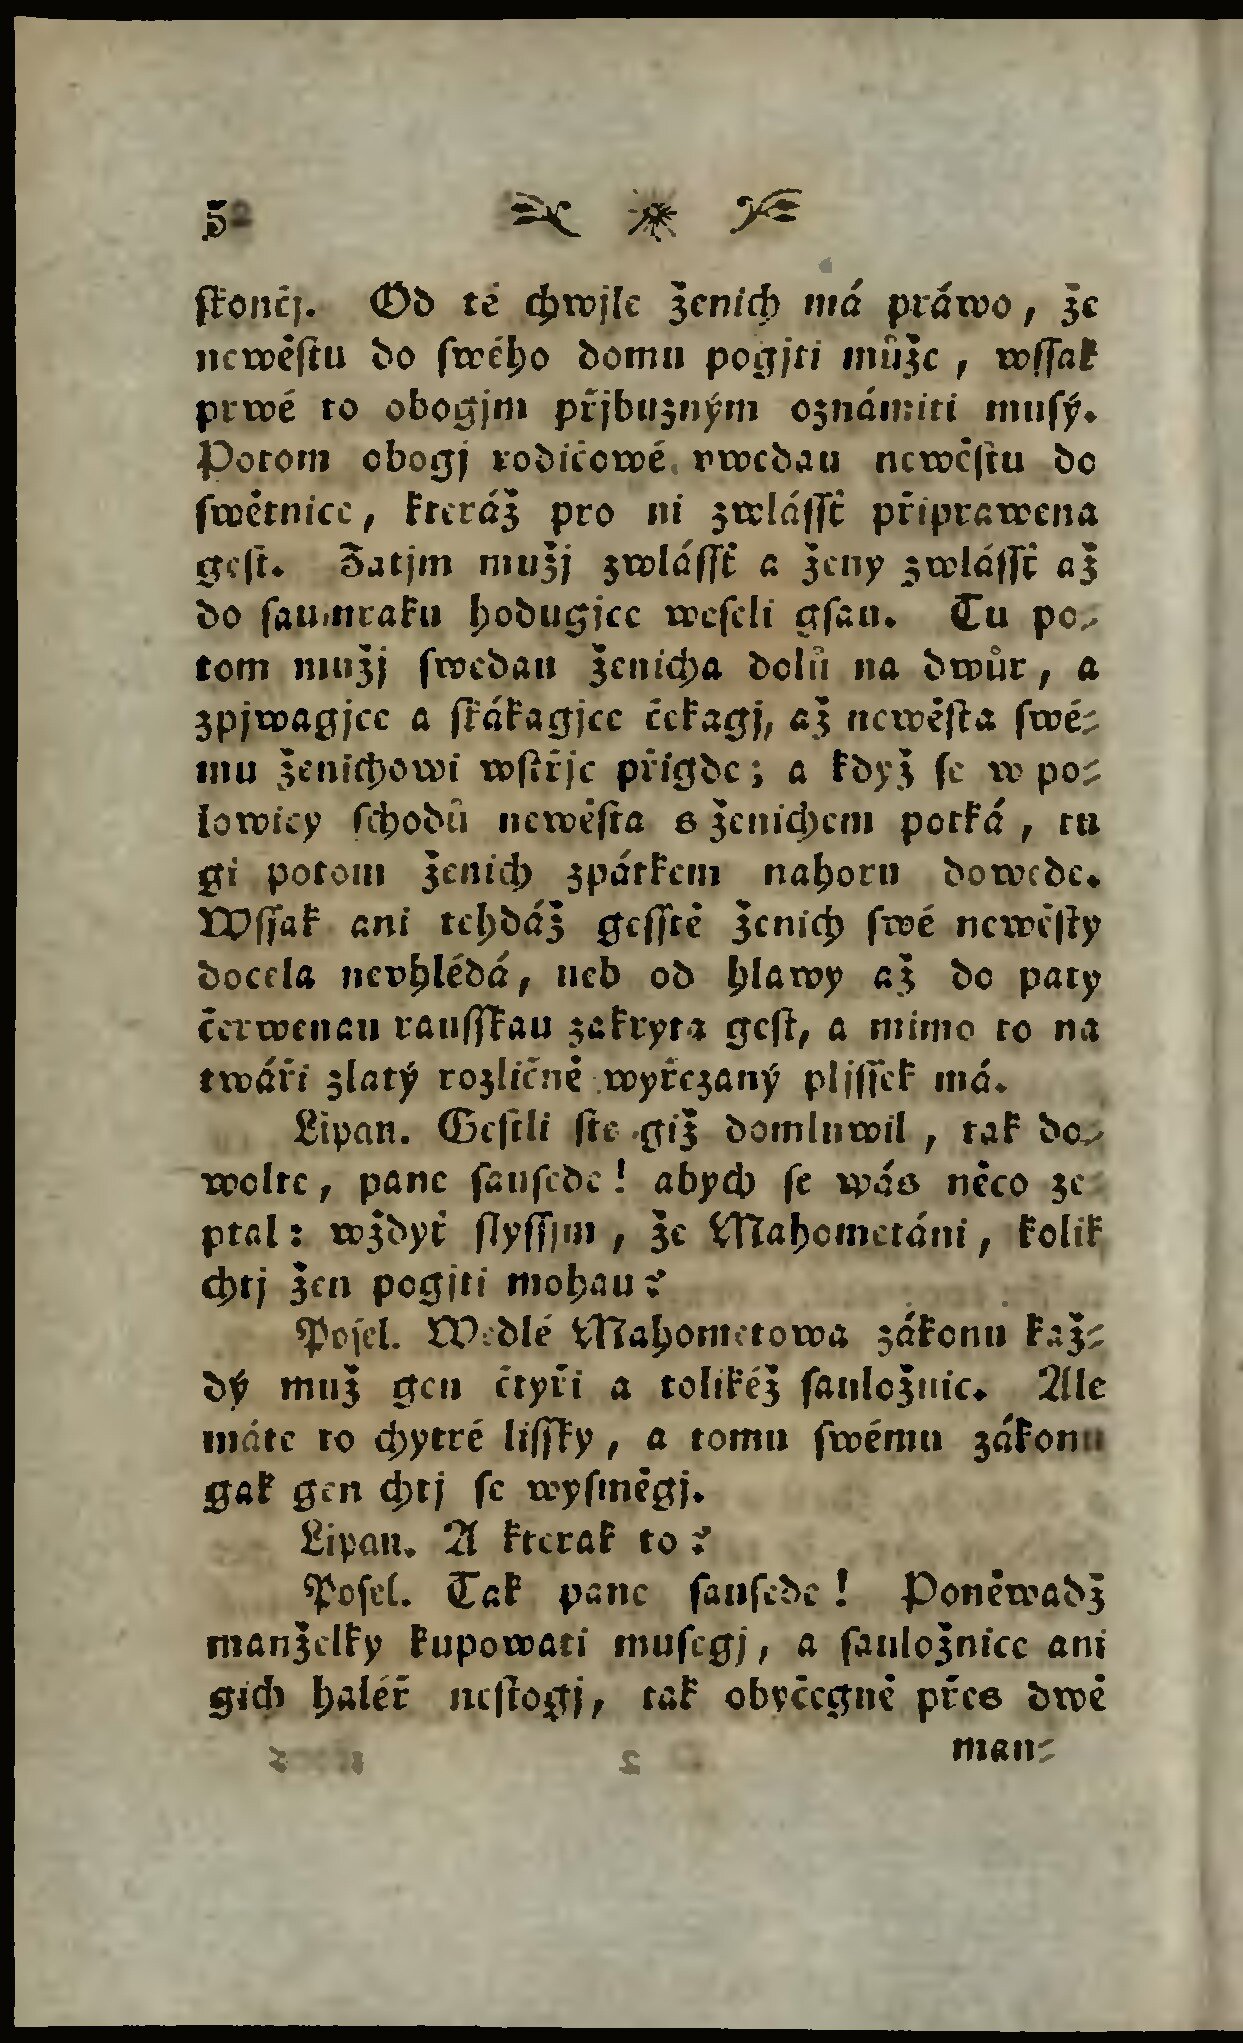 52
skončj. Od té chwjle ženich má práwo, že
newěstu do swého domu pogjti může, wssak
prwé to obogjm přjbuzným oznámiti musý.
Potom obogj rodičowé vwedau newěstu do
swětnice, kteráž pro ni zwlássť připrawena
gest. Zatjm mužj zwlássť a ženy zwlássť až
do saumraku hodugjce weseli gsau. Tu po-
tom mužj swedau ženicha dolů na dwůr, a
zpjwagjce a skákagjce čekagj, až newěsta swé-
mu ženichowi wstřjc přigde; a když se w po-
lowicy schodů newěsta s ženichem potká, tu
gi potom ženich zpátkem nahoru dowede.
Wssak ani tehdáž gesstě ženich swé newěsty
docela nevhlédá, neb od hlawy až do paty
čerwenau rausskau zakryta gest, a mimo to na
twáři zlatý rozličně wyřezaný pljssek má.
Lipan. Gestli ste giž domluwil, tak do-
wolte, pane sausede! abych se wás něco ze-
ptal: wždyť slyssjm, že Mahometáni, kolik
chtj žen pogjti mohau?
Posel. Wedlé Mahometowa zákonu kaž-
dý muž gen čtyři a tolikéž sauložnic. Ale
máte to chytré lissky, a tomu swému zákonu
gak gen chtj se wysměgj.
Lipan. A kterak to?
Posel. Tak pane sausede! Poněwadž
manželky kupowati musegj, a sauložnice ani
gich haléř nestogj, tak obyčegně přes dwě
man-